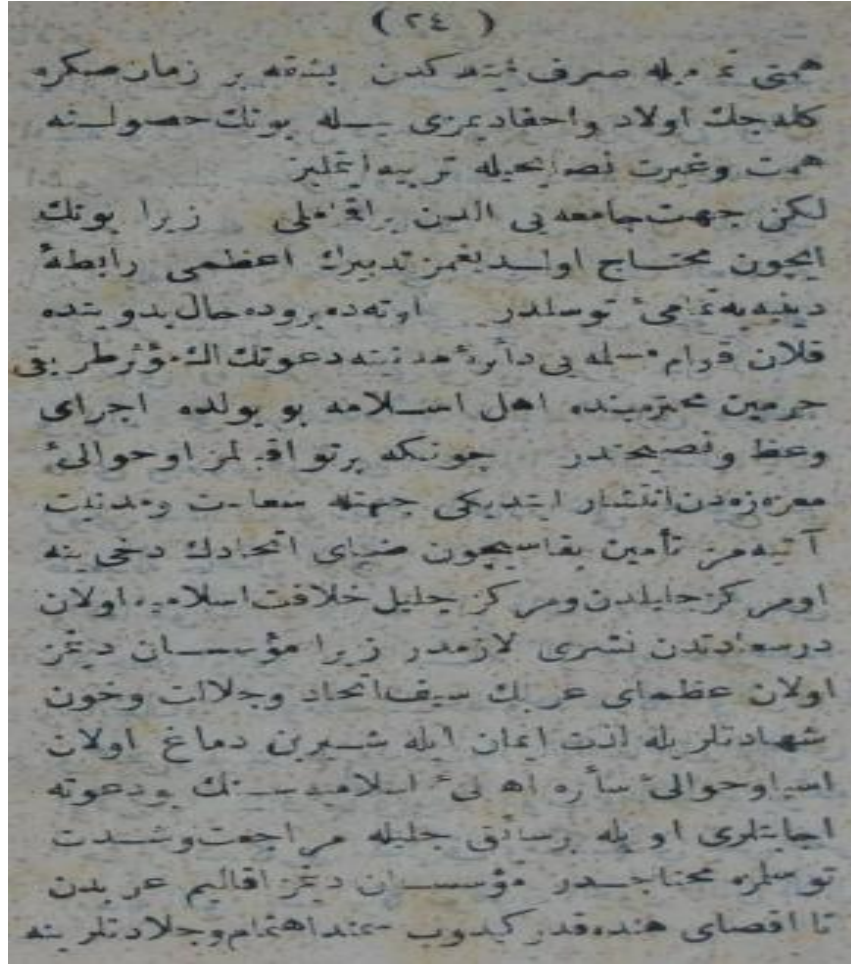 ( ٢٤ )
همتى تمميله صرف ايتدكدن بشقه بر زمان صكره
كله جك اولاد واحفاديمزى بيله بونك حصولنه
همت وغيرت نصايحيله تربيه ايتمليز
لكن جهت جامعه يى الدن براقماملى زيرا بونك
ايچون محتاج اولديغمز تدبيرك اعظمى رابطهٔ
دينيه يه تمامئ توسلدر اوته ده بروده حال بدويتده
قلان اقوام مسلمه يى دائرهٔ مدنيته دعوتك اك مؤثر طريقى
حرمين محترمينده اهل اسلامه بو يولده اجراى
وعظ ونصيحتدر چونكه پرتو اقبالمز او حوالئ
معززه دن انتشار ايتديكى جهتله سعادت ومدنيت
آتيه مز تأمين بقاسيچون ضياى اتحادك دخى ينه
او مركز جليلدن ومركز جليل خلافت اسلاميه اولان
درسعادتدن نشرى لازمدر زيرا مؤسسان دينمز
اولان عظماى عربك سيف اتحاد وجلادت وخون
شهادتلريله لذت ايمان ايله شيرين دماغ اولان
آسيا وحوالئ سائره اهالئ اسلاميه سنك بو دعوته
اجابتلرى اويله برسائق جليله مراجعت وشدت
توسلره محتاجدر مؤسسان دينمز اقاليم عربدن
تا اقصاى هنده قدر كيدوب سمند اهتمام وجلادتلرينه